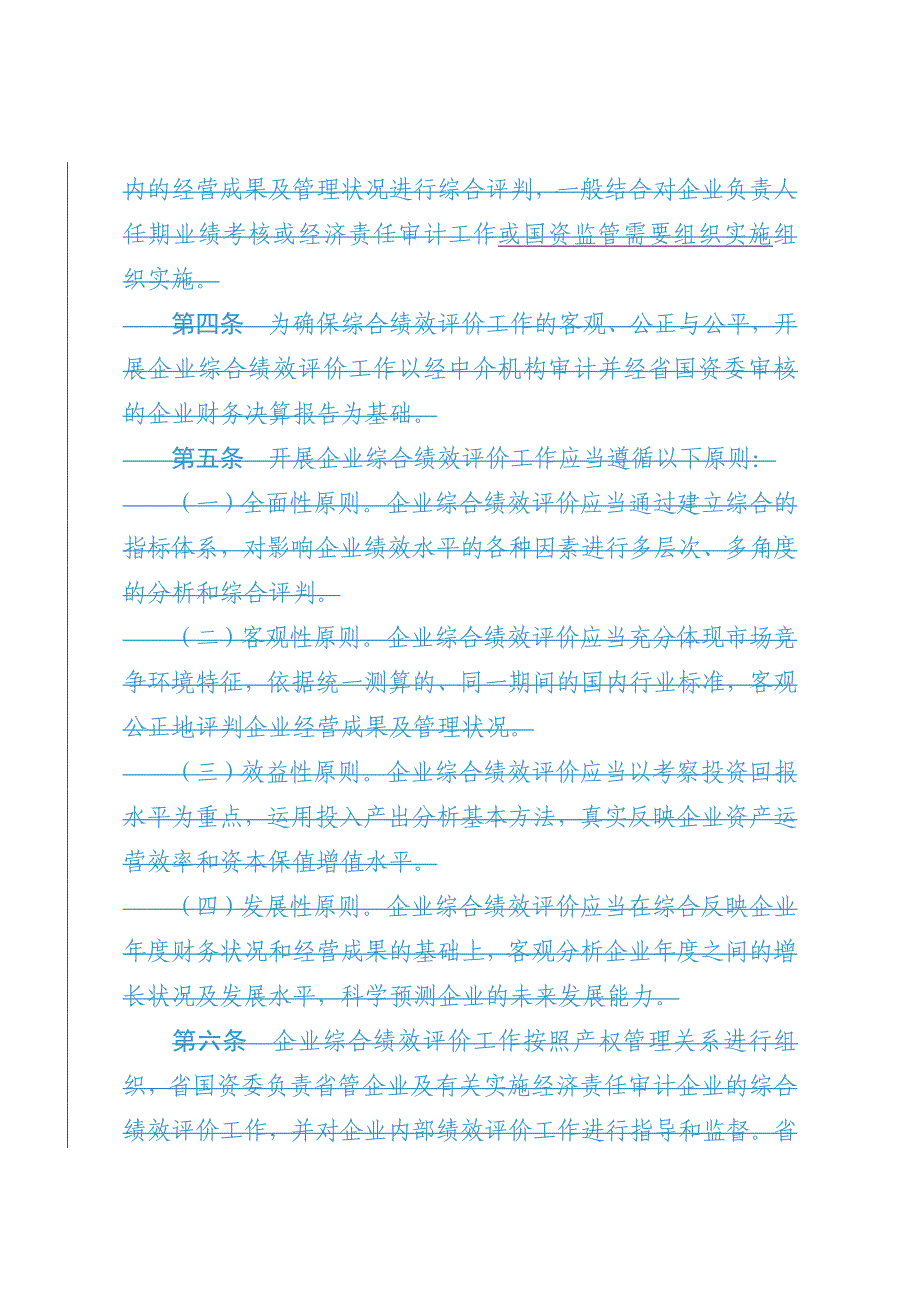 内的经营成果及管理状况进行综合评判，一般结合对企业负责人
任期业绩考核或经济责任审计工作或国资监管需要组织实施组
织实施。
第四条　为确保综合绩效评价工作的客观、公正与公平，开
展企业综合绩效评价工作以经中介机构审计并经省国资委审核
的企业财务决算报告为基础。
第五条　开展企业综合绩效评价工作应当遵循以下原则：
（一）全面性原则。企业综合绩效评价应当通过建立综合的
指标体系，对影响企业绩效水平的各种因素进行多层次、多角度
的分析和综合评判。
（二）客观性原则。企业综合绩效评价应当充分体现市场竞
争环境特征，依据统一测算的、同一期间的国内行业标准，客观
公正地评判企业经营成果及管理状况。
（三）效益性原则。企业综合绩效评价应当以考察投资回报
水平为重点，运用投入产出分析基本方法，真实反映企业资产运
营效率和资本保值增值水平。
（四）发展性原则。企业综合绩效评价应当在综合反映企业
年度财务状况和经营成果的基础上，客观分析企业年度之间的增
长状况及发展水平，科学预测企业的未来发展能力。
第六条　企业综合绩效评价工作按照产权管理关系进行组
织，省国资委负责省管企业及有关实施经济责任审计企业的综合
绩效评价工作，并对企业内部绩效评价工作进行指导和监督。省